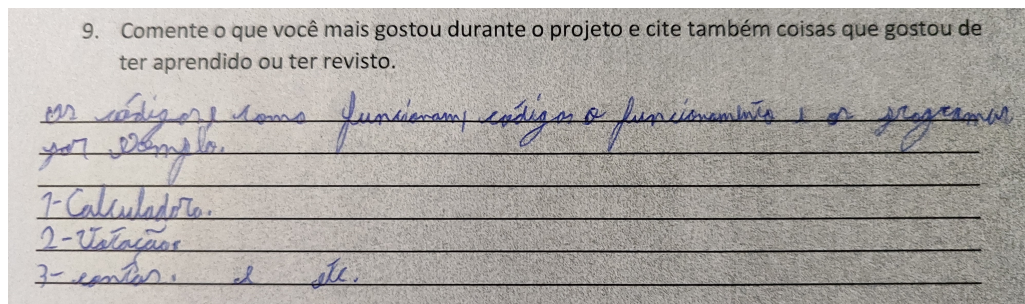 9. Comente o que você mais gostou durante o projeto e cite também coisas que gostou de
ter aprendido ou ter revisto.
os códigos e como funcionam, códigos o funcionamento e os programas
por exemplo.
1-Calculadora.
2-Votação
3-contas. e etc.